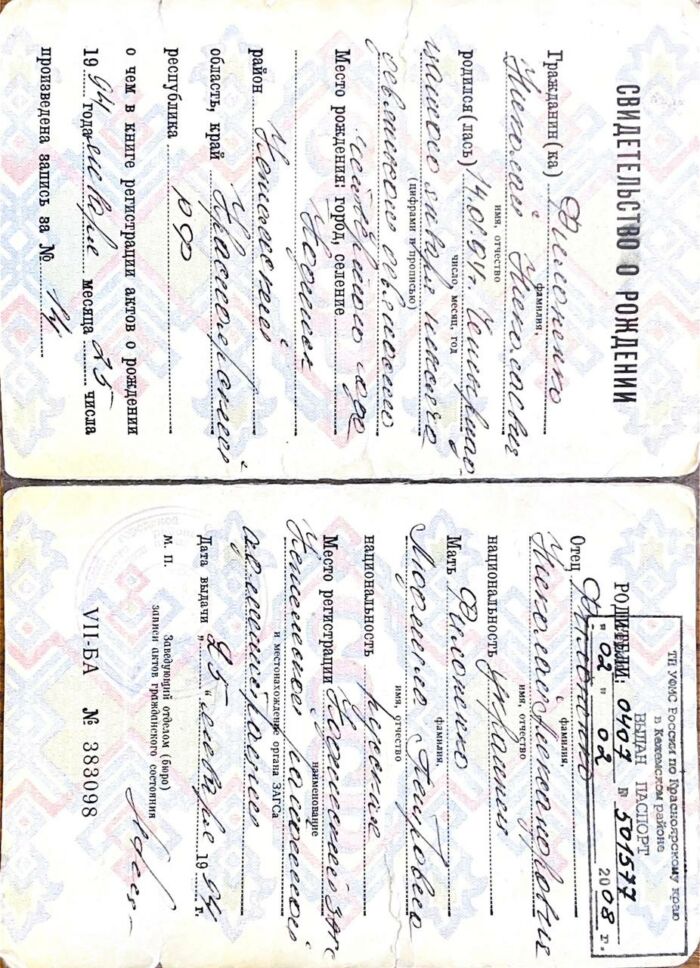 СВИДЕТЕЛЬСТВО О РОЖДЕНИИ
Гражданин(ка) Филоненко
фамилия,
Николай Николаевич
имя, отчество
родился(лась) 14.01.94г. Четырнад-
число, месяц, год
цатого января тысяча
(цифрами и прописью)
девятьсот девяносто
четвёртого года
Место рождения: город, селение
Кодинск
район Кежемский
область, край Красноярский
республика РФ
о чем в книге регистрации актов о рождении
1994 года января месяца 25 числа
произведена запись за № 14
ТП УФМС России по Красноярскому краю
в Кежемском районе
ВЫДАН ПАСПОРТ
0407 № 501577
"02" 02 2008 г.
РОДИТЕЛИ:
Отец Филоненко
фамилия,
Николай
имя, отчество
национальность украинец
Мать Филоненко
фамилия,
Людмила Павловна
имя, отчество
национальность русская
Место регистрации Кодинский ЗАГС
наименование
Кежемского районного
и местонахождение органа ЗАГСа
администрации
Дата выдачи "25" января 1994 г.
М. П.
Заведующий отделом (бюро)
записи актов гражданского состояния
VII-БА № 383098